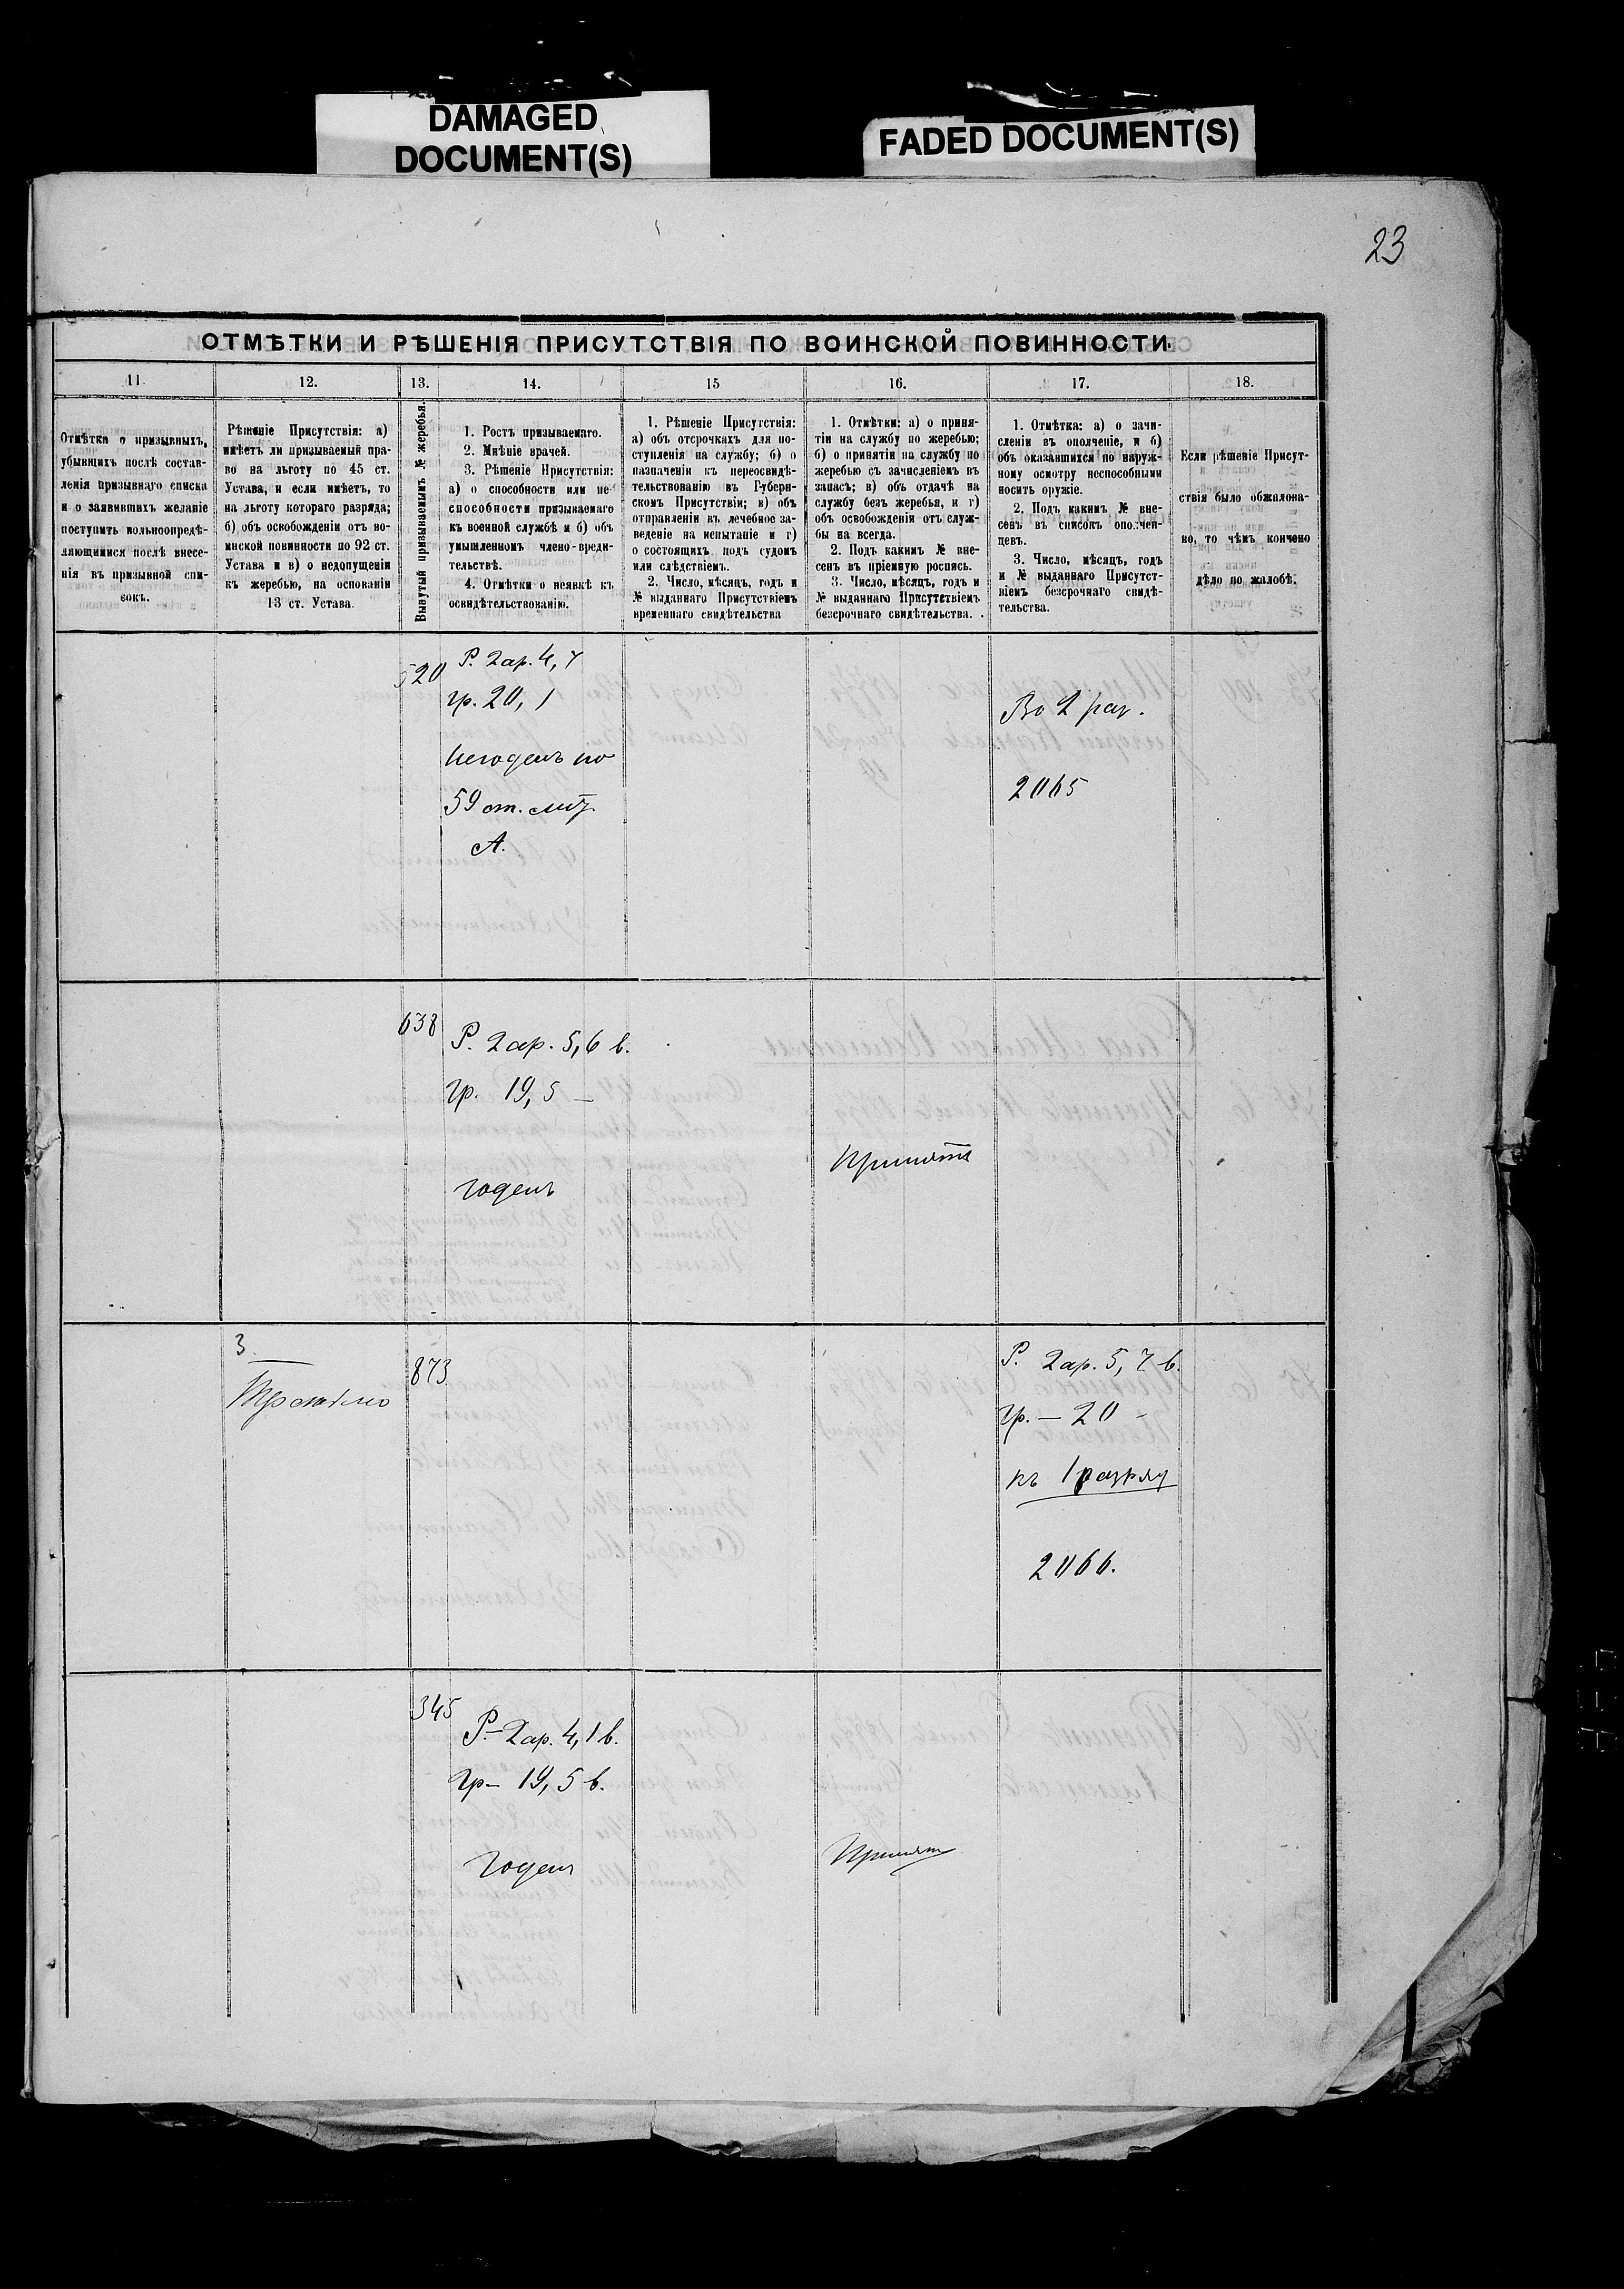 DAMAGED
DOCUMENT(S)
FADED DOCUMENT(S)
23
ОТМѢТКИ И РѢШЕНІЯ ПРИСУТСТВІЯ ПО ВОИНСКОЙ ПОВИННОСТИ.
11.
12.
13.
14.
15
16.
17.
18.
Отмѣтка о призывныхъ,
убывшихъ послѣ состав-
ленія призывнаго списка
и о заявившихъ желаніе
поступить вольноопредѣ-
ляющимися послѣ внесе-
нія въ призывной спи-
сокъ.
Рѣшеніе Присутствія: а)
имѣетъ ли призываемый пра-
во на льготу по 45 ст.
Устава, и если имѣетъ, то
на льготу котораго разряда;
б) объ освобожденіи отъ во-
инской повинности по 92 ст.
Устава и в) о недопущеніи
къ жеребью, на основаніи
13 ст. Устава.
Вынутый призываемымъ № жеребья.
1. Ростъ призываемаго.
2. Мнѣніе врачей.
3. Рѣшеніе Присутствія:
а) о способности или не-
способности призываемаго
къ военной службѣ и б) объ
умышленномъ члено-вреди-
тельствѣ.
4. Отмѣтки о неявкѣ къ
освидѣтельствованію.
1. Рѣшеніе Присутствія:
а) объ отсрочкахъ для по-
ступленія на службу; б) о
назначеніи къ переосвидѣ-
тельствованію въ Губерн-
скомъ Присутствіи; в) объ
отправленіи въ лечебное за-
веденіе на испытаніе и г)
о состоящихъ подъ судомъ
или слѣдствіемъ.
2. Число, мѣсяцъ, годъ и
№ выданнаго Присутствіемъ
временнаго свидѣтельства
1. Отмѣтки: а) о приня-
тіи на службу по жеребью;
б) о принятіи на службу по
жеребью съ зачисленіемъ въ
запасъ; в) объ отдачѣ на
службу безъ жеребья, и г)
объ освобожденіи отъ служ-
бы на всегда.
2. Подъ какимъ № вне-
сенъ въ пріемную роспись.
3. Число, мѣсяцъ, годъ и
№ выданнаго Присутствіемъ
безсрочнаго свидѣтельства.
1. Отмѣтка: а) о зачи-
сленіи въ ополченіе, и б)
объ оказавшихся по наруж-
ному осмотру неспособными
носить оружіе.
2. Подъ какимъ № вне-
сенъ въ списокъ ополчен-
цевъ.
3. Число, мѣсяцъ, годъ
и № выданнаго Присутст-
віемъ безсрочнаго свидѣ-
тельства.
Если рѣшеніе Присут-
ствія было обжалова-
но, то чѣмъ кончено
дѣло по жалобѣ.
520
Р. 2ар. 4, 7
гр. 20, 1
негоденъ по
59 ст. лит.
А.
Во 2 раз.
2065
638
Р. 2ар. 5,6 в.
гр. 19, 5 —
годенъ
Принятъ
3.
873
Р. 2ар. 5, 7 в.
гр. — 20 -
къ 1 разряд
2066.
345
Р - 2ар. 4, 1 в.
гр — 19, 5 в.
Годенъ
Принят